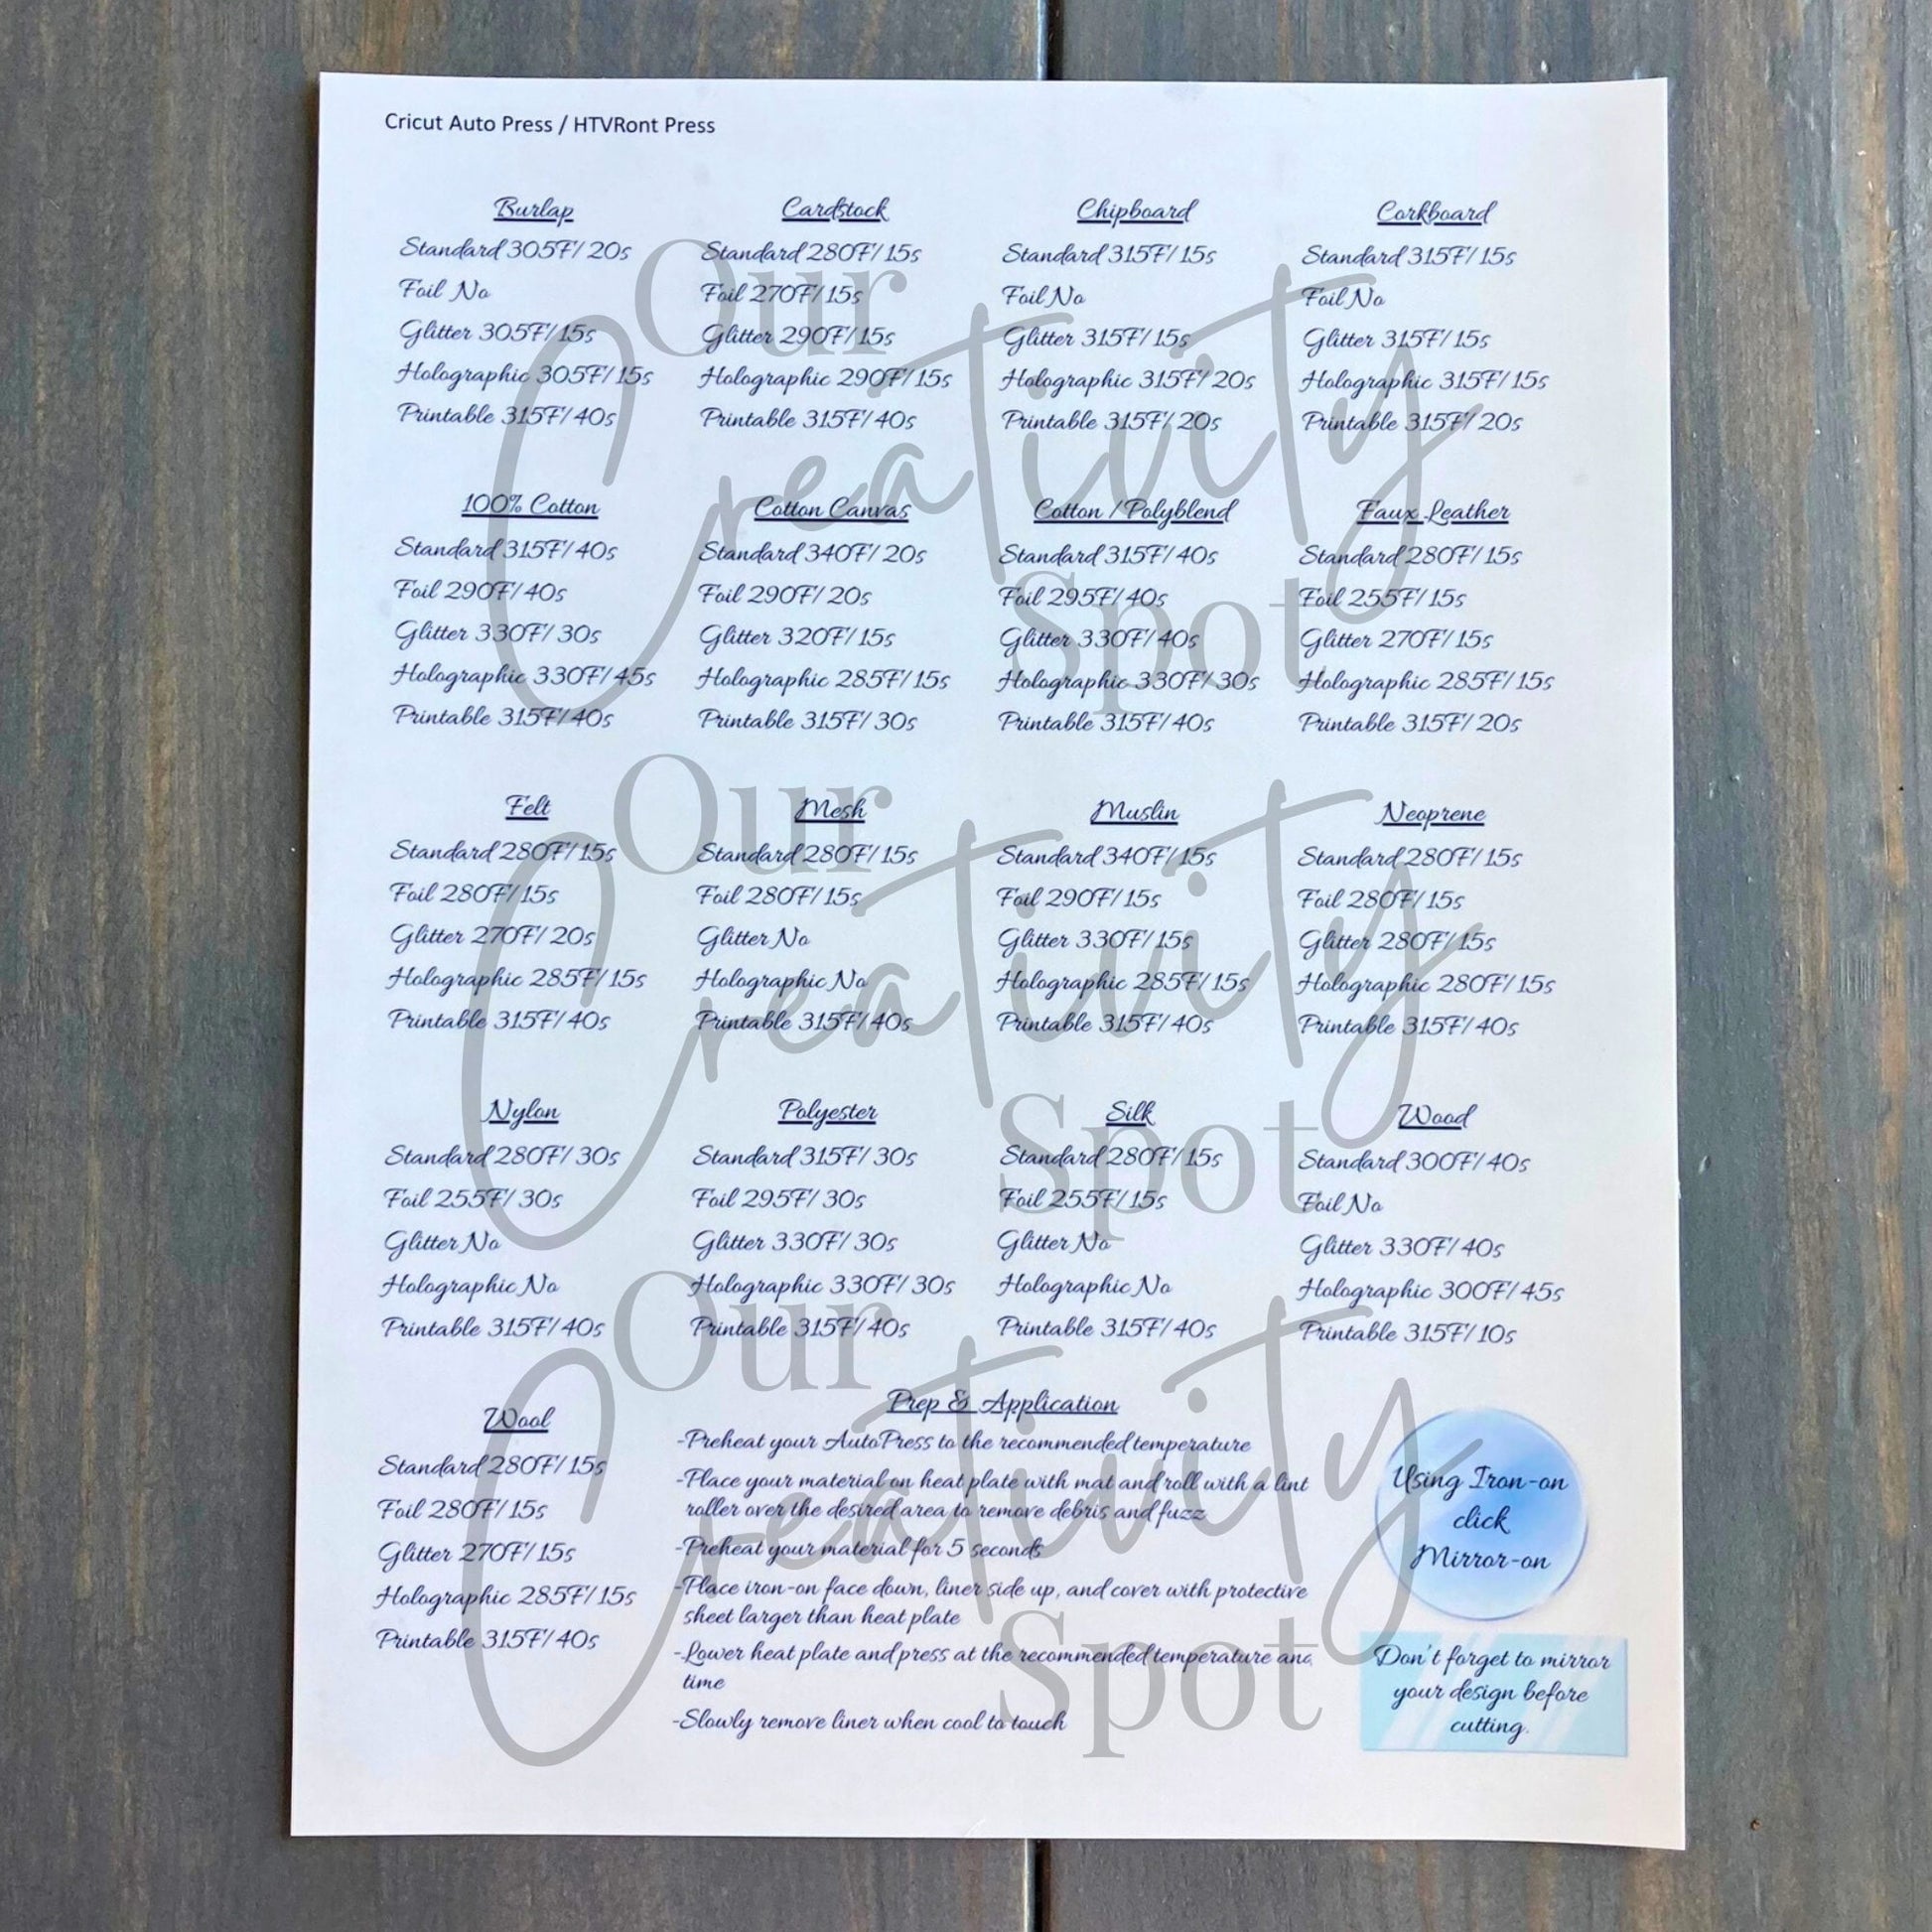 Cricut Auto Press / HTVRont Press
Burlap
Standard 305F/ 20s
Foil No
Glitter 305F/ 15s
Holographic 305F/ 15s
Printable 315F/ 40s
Cardstock
Standard 280F/ 15s
Foil 270F/ 15s
Glitter 290F/ 15s
Holographic 290F/ 15s
Printable 315F/ 40s
Chipboard
Standard 315F/ 15s
Foil No
Glitter 315F/ 15s
Holographic 315F/ 20s
Printable 315F/ 20s
Corkboard
Standard 315F/ 15s
Foil No
Glitter 315F/ 15s
Holographic 315F/ 15s
Printable 315F/ 20s
100% Cotton
Standard 315F/ 40s
Foil 290F/ 40s
Glitter 330F/ 30s
Holographic 330F/ 45s
Printable 315F/ 40s
Cotton Canvas
Standard 340F/ 20s
Foil 290F/ 20s
Glitter 320F/ 15s
Holographic 285F/ 15s
Printable 315F/ 30s
Cotton / Polyblend
Standard 315F/ 40s
Foil 295F/ 40s
Glitter 330F/ 40s
Holographic 330F/ 30s
Printable 315F/ 40s
Faux Leather
Standard 280F/ 15s
Foil 255F/ 15s
Glitter 270F/ 15s
Holographic 285F/ 15s
Printable 315F/ 20s
Felt
Standard 280F/ 15s
Foil 280F/ 15s
Glitter 270F/ 20s
Holographic 285F/ 15s
Printable 315F/ 40s
Mesh
Standard 280F/ 15s
Foil 280F/ 15s
Glitter No
Holographic No
Printable 315F/ 40s
Muslin
Standard 340F/ 15s
Foil 290F/ 15s
Glitter 330F/ 15s
Holographic 285F/ 15s
Printable 315F/ 40s
Neoprene
Standard 280F/ 15s
Foil 280F/ 15s
Glitter 280F/ 15s
Holographic 280F/ 15s
Printable 315F/ 40s
Nylon
Standard 280F/ 30s
Foil 255F/ 30s
Glitter No
Holographic No
Printable 315F/ 40s
Polyester
Standard 315F/ 30s
Foil 295F/ 30s
Glitter 330F/ 30s
Holographic 330F/ 30s
Printable 315F/ 40s
Silk
Standard 280F/ 15s
Foil 255F/ 15s
Glitter No
Holographic No
Printable 315F/ 40s
Wood
Standard 300F/ 40s
Foil No
Glitter 330F/ 40s
Holographic 300F/ 45s
Printable 315F/ 10s
Wool
Standard 280F/ 15s
Foil 280F/ 15s
Glitter 270F/ 15s
Holographic 285F/ 15s
Printable 315F/ 40s
Prep & Application
-Preheat your AutoPress to the recommended temperature
-Place your material on heat plate with mat and roll with a lint
roller over the desired area to remove debris and fuzz
-Preheat your material for 5 seconds
-Place iron-on face down, liner side up, and cover with protective
sheet larger than heat plate
-Lower heat plate and press at the recommended temperature and
time
-Slowly remove liner when cool to touch
Using Iron-on
click
Mirror-on
Don't forget to mirror
your design before
cutting.
Our
Creativity
Spot
Our
Creativity
Spot
Our
Creativity
Spot